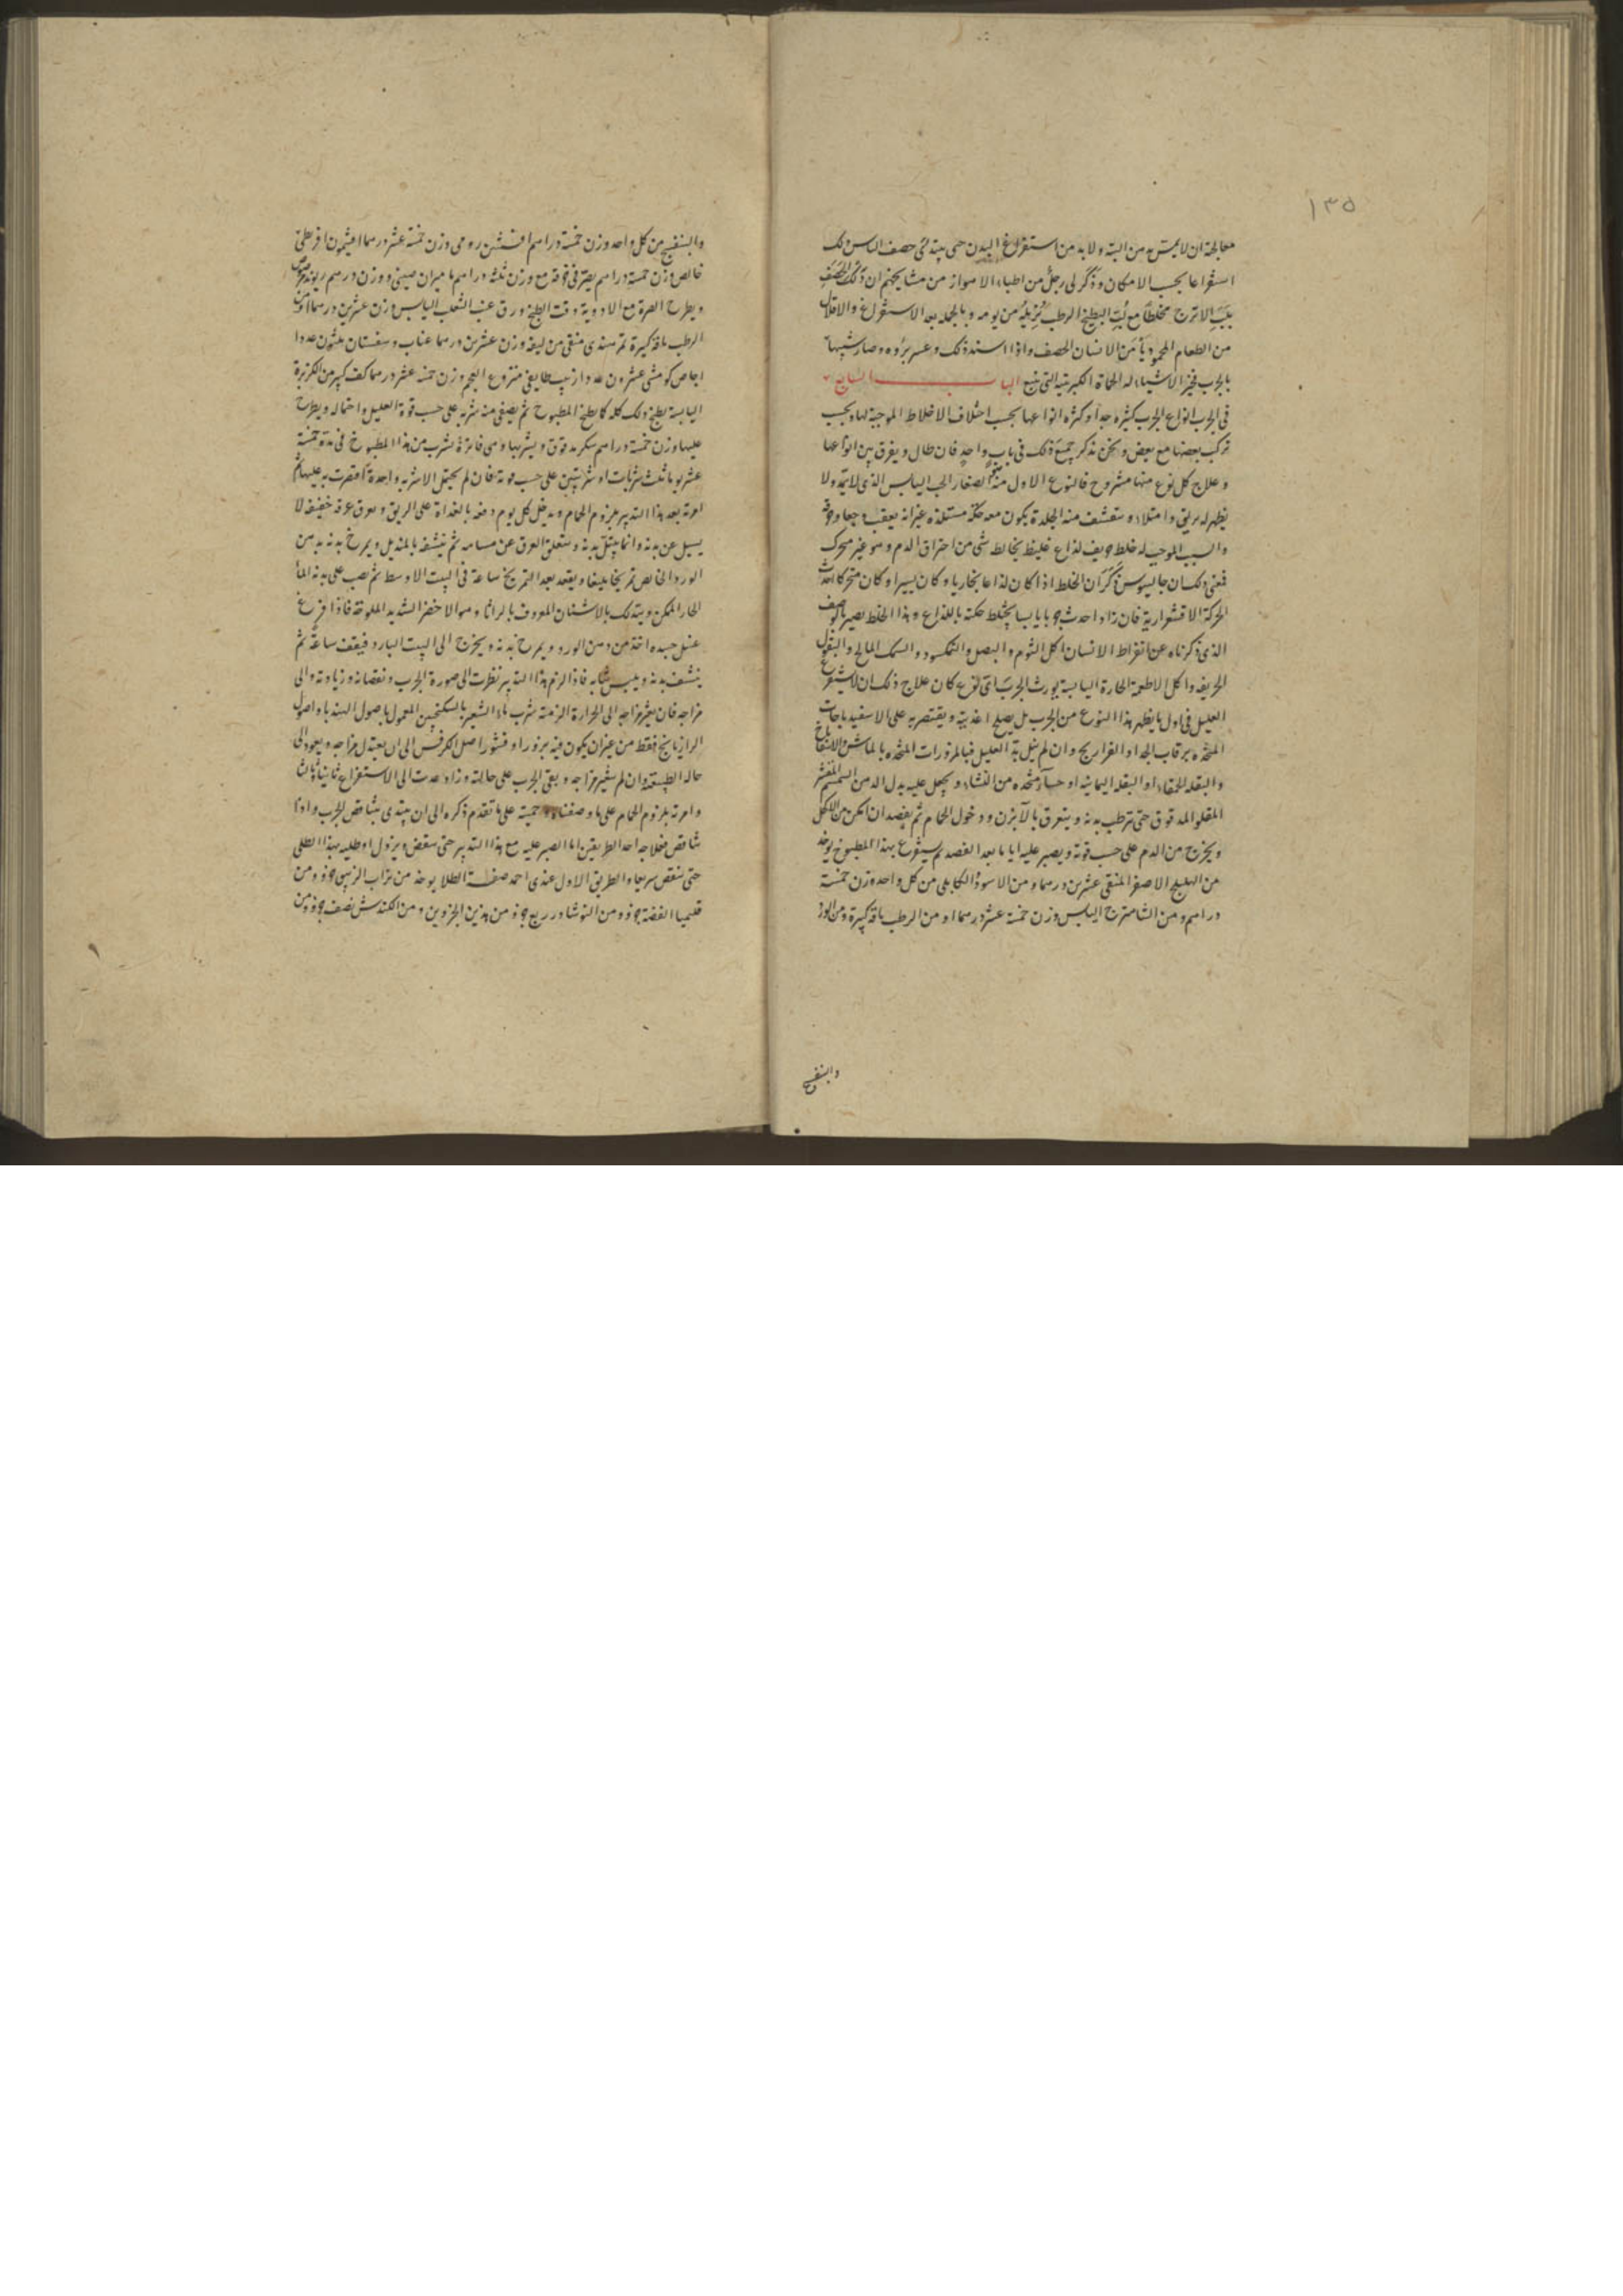 ١٣٥
معالجته ان لا يمس بدهن البتة ولا بد من استفراغ البدن حتى يبتدئ حصف الناس ذلك
استفراغا بحسب الامكان وذكر لى رجل من اطباء الاهواز من مشايخهم ان ذلك الحصف
بلب الاترج مخلطا مع لب البطيخ الرطب يزيله من يومه وبالجملة بعد الاستفراغ والاقلال
من الطعام المحمود يأمن الانسان الحصف واذا اشتد ذلك وعسر برؤه وصار شبيها
بالجرب فخير الاشياء له الحماة الكبريتية التى تنبع الباب السابع
فى الجرب انواع الجرب كثيرة جدا وكثرة انواعها بحسب اختلاف الاخلاط الموجبة لها وبحسب
تركب بعضها مع بعض ونحن نذكر جميع ذلك فى باب واحد فان طال ويفرق بين انواعها
وعلاج كل نوع منها مشروح فالنوع الاول منه الصغار الحب اليابس الذى لا يتمد ولا
يظهر له بريق وامتلاء وتتقشف منه الجلدة يكون معه حكة مستلذة غير انه يعقب وجعا وحرقة
والسبب الموجب له خلط حريف لذاع غليظ يخالطه شى من احتراق الدم وهو غير متحرك
فمعنى ذلك ان جالينوس ذكر ان الخلط اذا كان لذاعا بخاريا وكان يسيرا وكان متحركا احدث
الحركة الاقشعرارية فان زاد احدث جربا يابسا يختلط حكة باللذاع وهذا الخلط يصير بالوصف
الذى ذكرناه عن افراط الانسان اكل الثوم والبصل والنمكسود والسمك المالح والبقول
الحريفة واكل الاطعمة الحارة اليابسة يورث الجرب اى نوع كان علاج ذلك ان لا يستفرغ
العليل فى اول ما يظهر هذا النوع من الجرب بل يصلح اغذيته ويقتصر به على الاسفيدباجات
المتخذة برقاب الجدا او الفراريج وان لم ينل بة العليل فبالمزورات المتخذه بالماش والاسفاناخ
والبقلة الحمقاء او البقلة اليمانيه او حساء متخذه من النشاء ويجعل عليه بدل الدهن السمسم المقشر
المقلو المدقوق حتى ترطب بدنه ويتعرق بالآبزن ودخول الحمام ثم يفصد ان امكن من الاكحل
ويخرج من الدم على حسب قوته ويصبر عليه اياما بعد الفصد ثم يستفرغ بهذا المطبوخ يوخذ
من الهليلج الاصفر المنقى عشرين درهما ومن الاسود الكابلى من كل واحد وزن خمسة
دراهم ومن الشاهترج اليابس وزن خمسة عشر درهما او من الرطب باقة كبيرة ومن الورد
والبنفسج
والبنفسج من كل واحد وزن خمسة دراهم افسنتين رومى وزن خمسة عشر درهما افيثمون اقريطى
خالص وزن خمسة دراهم يصر فى خرقة مع وزن ثلثة دراهم ماميران صينى ووزن درهم ريوند
ويطرح الصرة مع الادوية وقت الطبخ ورق عنب الثعلب اليابس وزن عشرين درهما او من
الرطب باقة كبيرة تمر هندى منقى من ليفه وزن عشرين درهما عناب وسفستان ثلثون عددا
اجاص كومشى عشرون عددا زبيب طايفى منزوع العجم وزن خمسة عشر درهما كف كبير من الكزبرة
اليابسة يطبخ ذلك كله كما يطبخ المطبوخ ثم يصفى منه شربه على حسب قوة العليل واحتماله ويطرح
عليها وزن خمسة دراهم سكر مدقوق ويشربها وهى فاترة يشرب من هذا المطبوخ فى مدة خمسة
عشر يوما ثلث شربات او شربتين على حسب قوته فان لم يحتمل الا شربه واحدة اقتصرت به عليها ثم
امرته بعد هذا التدبير بلزوم الحمام ويدخل كل يوم دفعه بالغداة على الريق ويعرق عرقه خفيفه لا
يسيل عن بدنه وانما يبتل بدنه ويتعلق العرق عن مسامه ثم ينشفه بالمنديل ويمرخ بدنه بدهن
الورد الخالص تمريخا بليغا ويقعد بعد التمريخ ساعة فى البيت الاوسط ثم يصب على بدنه الماء
الحار الممكن ويتدلك بالاشنان المعروف بالراثا وهو الاخضر الشديد الملوحة فاذا فرغ
غسل جسده اخذ من دهن الورد ويمرخ بدنه ويخرج الى البيت البارد فيقف ساعة ثم
ينشف بدنه ويلبس ثيابه فاذا لزم هذا التدبير نظرت الى صورة الجرب ونقصانه وزيادته والى
مزاجه فان تغير مزاجه الى الحرارة الزمته شرب ماء الشعير بالسكنجبين المعمول باصول الهندبا واصول
الرازيانج فقط من غير ان يكون فيه بزور او قشور اصل الكرفس الى ان يعتدل مزاجه ويعود الى
حاله الطبيعة وان لم يتغير مزاجه وبقى الجرب على حالته وزاد عدت الى الاستفراغ ثانيا وثالثا
وامرته بلزوم الحمام على ما وصفناه وحميته على ما تقدم ذكره الى ان يبتدى يتناقص الجرب واذا
تناقص فعلاجه احد الطريقين اما الصبر عليه مع هذا التدبير حتى ينقص ويزول او طليه بهذا الطلى
حتى ينقص سريعا والطريق الاول عندى احمد صفة الطلا يوخذ من تراب الزيبق جزو ومن
قليميا الفضة جزو ومن النوشادر ربع جزو من هذين الجزوين ومن الكندس نصف جزو ومن